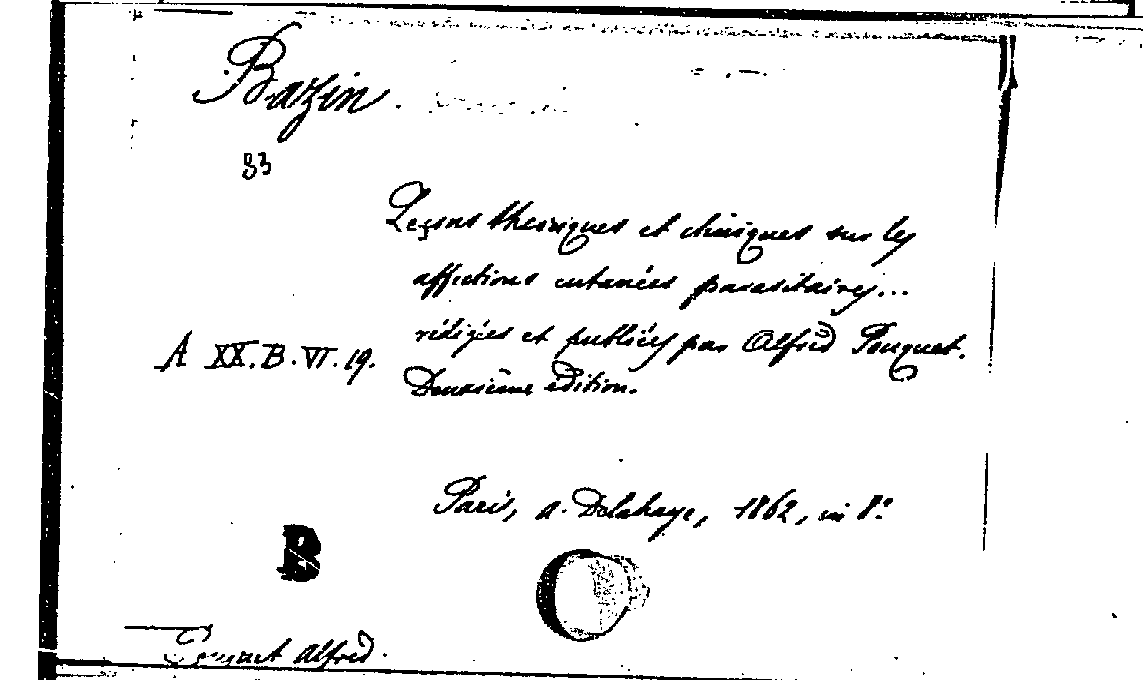 Bazin.
83
Leçons théoriques et cliniques sur les
affections cutanées parasitaires...
rédigées et publiées par Alfred Pouquet.
A XX.B.VI.19.
Deuxième édition.
Paris, A. Delahaye, 1862, in 8°.
B
Pouquet Alfred.